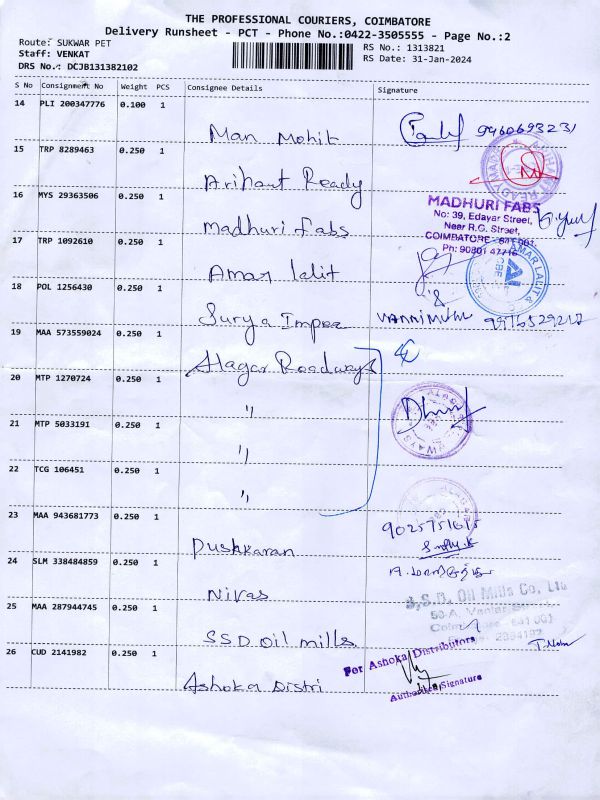 THE PROFESSIONAL COURIERS, COIMBATORE
Delivery Runsheet - PCT - Phone No.:0422-3505555 - Page No.:2
Route: SUKWAR PET
RS No.: 1313821
Staff: VENKAT
RS Date: 31-Jan-2024
DRS No.: DCJB131382102
S No Consignment No Weight PCS Consignee Details Signature
14 PLI 200347776 0.100 1
Man Mohit
15 TRP 8289463 0.250 1
Arihant Ready
16 MYS 29363506 0.250 1
MADHURI FABS
No: 39, Edayar Street,
Near R.G. Street,
COIMBATORE - 641 001.
Madhuri Fabs
17 TRP 1092610 0.250 1
Amar Lalit
18 POL 1256430 0.250 1
Surya Impex
19 MAA 573559024 0.250 1
Alagar Roadways
20 MTP 1270724 0.250 1
"
21 MTP 5033191 0.250 1
"
22 TCG 106451 0.250 1
"
23 MAA 943681773 0.250 1
Pushkaran
24 SLM 338484859 0.250 1
Nivas
25 MAA 287944745 0.250 1
S.S.D. Oil Mills Co. Ltd
SSD Oil mills
26 CUD 2141982 0.250 1
For Ashoka Distributors
Authorised Signature
Ashoka Distri